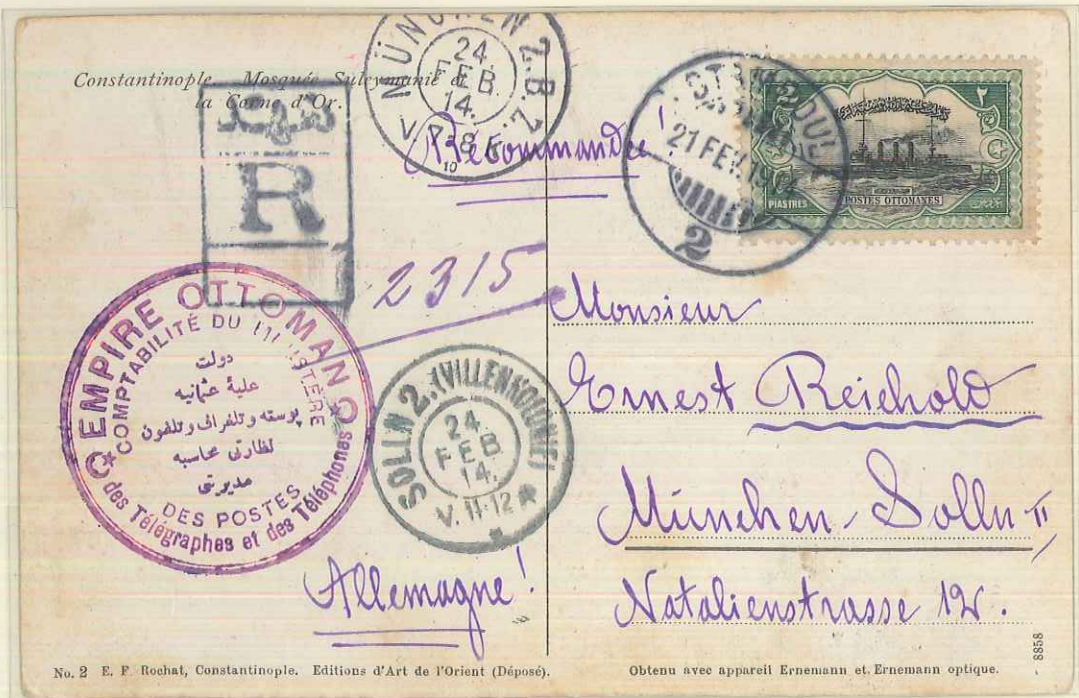 Constantinople. Mosquée Suleymanié et
la Corne d'Or.
MÜNCHEN 2.B.Z.
24.
FEB.
14.
V. 7-8 K.
10
Recommandé!
21 FEV.
2
2 ٢
PIASTRES POSTES OTTOMANES
R
2315
EMPIRE OTTOMAN
COMPTABILITÉ DU MINISTERE
دولت
علیهٔ عثمانیه
پوسته و تلغراف و تلفون
نظارتی محاسبه
مدیریتی
DES POSTES
des Télégraphes et des Téléphones
SOLLN 2. (VILLENKOLONIE)
24.
FEB.
14.
V. 11-12
Monsieur
Ernest Reichold
München-Solln II
Natalienstrasse 12.
Allemagne!
No. 2 E. F. Rochat, Constantinople. Editions d'Art de l'Orient (Déposé).
Obtenu avec appareil Ernemann et Ernemann optique.
8858